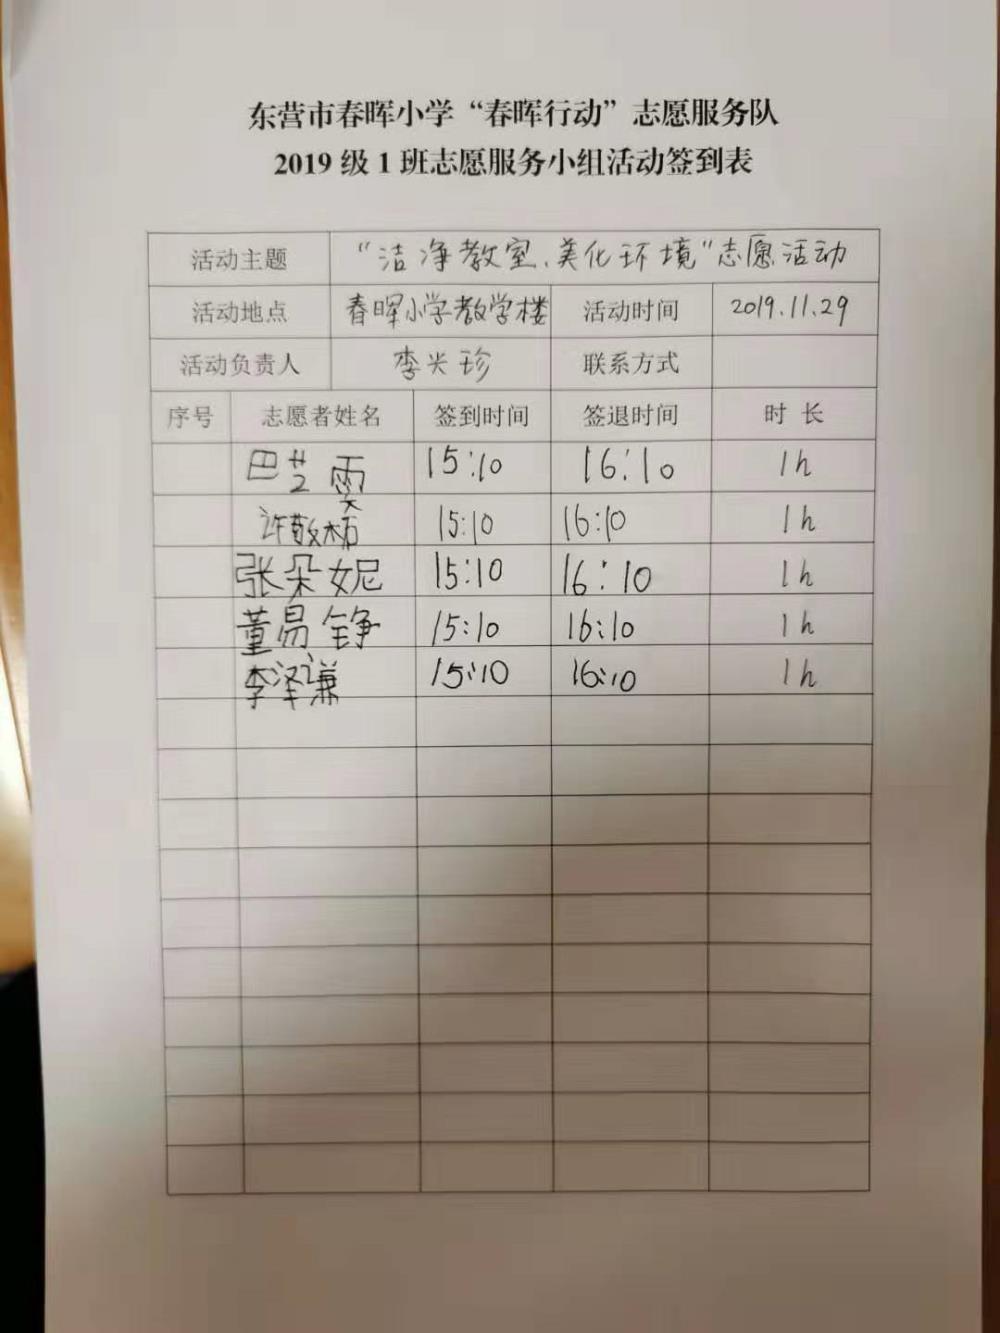 东营市春晖小学“春晖行动”志愿服务队
2019级1班志愿服务小组活动签到表
活动主题 “洁净教室、美化环境”志愿活动
活动地点 春晖小学教学楼 活动时间 2019.11.29
活动负责人 李兴珍 联系方式
序号 志愿者姓名 签到时间 签退时间 时长
巴艺雯 15:10 16:10 1h
许敬 15:10 16:10 1h
张朵妮 15:10 16:10 1h
董易铮 15:10 16:10 1h
李泽谦 15:10 16:10 1h